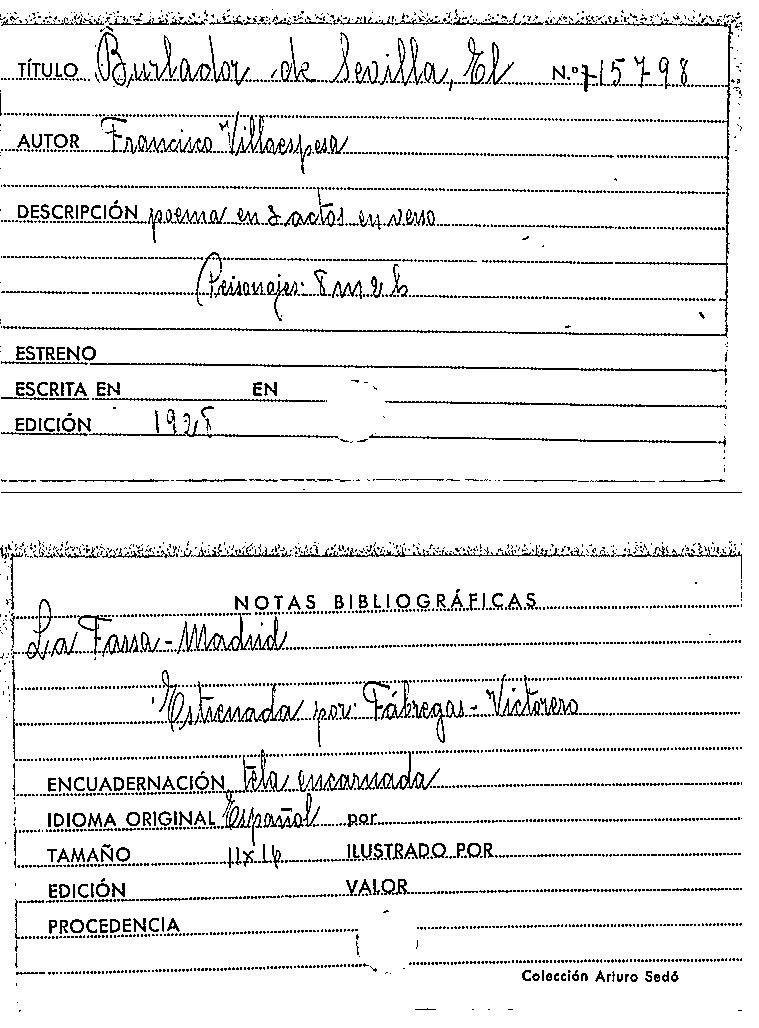 TÍTULO Burlador de Sevilla, El N.º 15798
AUTOR Francisco Villaespesa
DESCRIPCIÓN poema en 3 actos en verso
Personajes: 8 m 2 h
ESTRENO
ESCRITA EN EN
EDICIÓN 1928
NOTAS BIBLIOGRÁFICAS
La Farsa - Madrid
Estrenada por: Fábregas - Victorero
ENCUADERNACIÓN tela encarnada
IDIOMA ORIGINAL Español por
TAMAÑO 11 x 16 ILUSTRADO POR
EDICIÓN VALOR
PROCEDENCIA
Colección Arturo Sedó